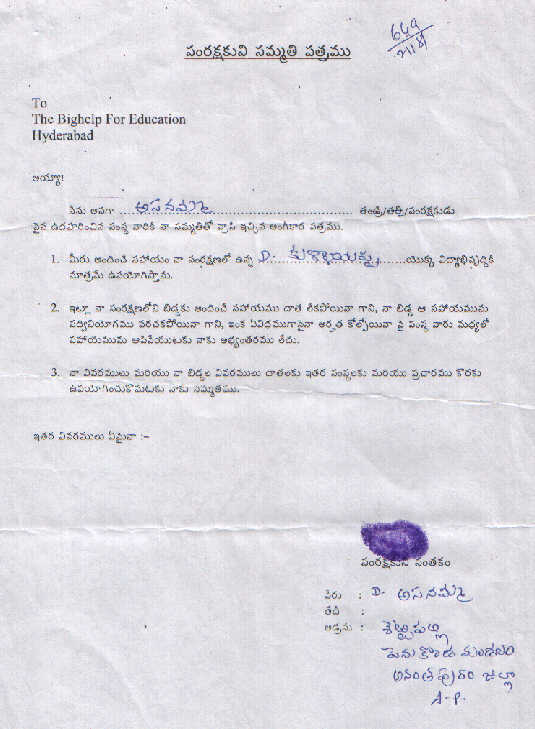 649
సంరక్షకుని సమ్మతి పత్రము
To
The Bighelp For Education
Hyderabad
అయ్యా!
నేను అనగా ..... అసనమ్మ ..... తండ్రి/తల్లి/సంరక్షకుడు
పైన ఉదహరించిన సంస్థ వారికి నా సమ్మతితో వ్రాసి ఇచ్చిన అంగీకార పత్రము.
1. మీరు అందించే సహాయం నా సంరక్షణలో ఉన్న D. ..... యొక్క విద్యాభివృద్ధికి
మాత్రమే ఉపయోగిస్తాను.
2. ఇట్లా నా సంరక్షణలోని బిడ్డకు అందించే సహాయము దాత లేకపోయినా గాని, నా బిడ్డ ఆ సహాయమును
సద్వినియోగము పరచకపోయినా గాని, ఇంక ఏవిధముగానైనా అర్హత కోల్పోయినా పై సంస్థ వారు మధ్యలో
సహాయమును ఆపివేయుటకు నాకు అభ్యంతరము లేదు.
3. నా వివరములు మరియు నా బిడ్డల వివరములు దాతలకు ఇతర సంస్థలకు మరియు ప్రచారము కొరకు
ఉపయోగించుకొనుటకు నాకు సమ్మతము.
ఇతర వివరములు ఏమైనా :-
సంరక్షకుని సంతకం
పేరు : D. అసనమ్మ
తేది :
అడ్రసు : శెట్టిపల్లి
పెనుకొండ మండలం
అనంతపురం జిల్లా
A.P.